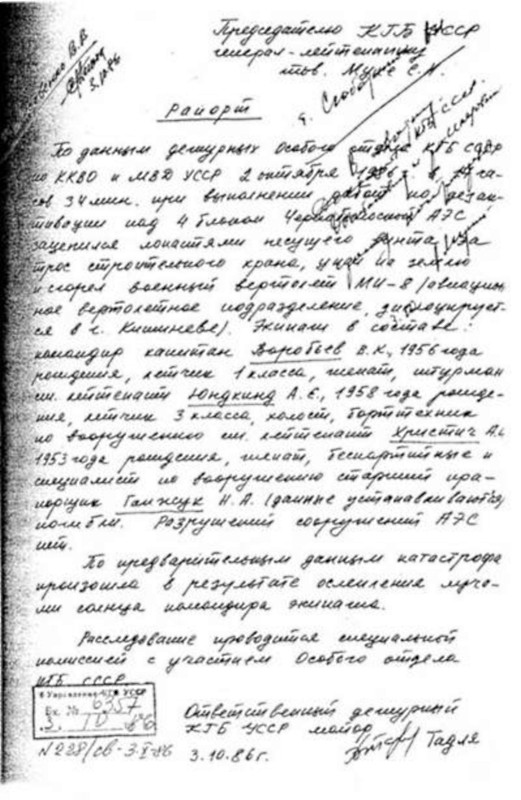 Председателю КГБ УССР
генерал-лейтенанту
тов. Мухе С.Н.
3.10.86
Рапорт
т. Слободенюк
По данным дежурных Особого отдела КГБ СССР
по ККВО и МВД УССР 2 октября 1986 г. в 17 ча-
сов 34 мин. при выполнении работ по дезак-
тивации над 4 блоком Чернобыльской АЭС
зацепился лопастями несущего винта за
трос строительного крана, упал на землю
и сгорел военный вертолет МИ-8 (авиацион-
ное вертолетное подразделение дислоцирует-
ся в г. Кишиневе). Экипаж в составе:
командир капитан Воробьев В.К., 1956 года
рождения, летчик 1 класса, женат, штурман
ст. лейтенант Юнгкинд А.Е., 1958 года рожде-
ния, летчик 3 класса, холост, борттехник
по вооружению ст. лейтенант Христич А.И.
1953 года рождения, женат, беспартийные и
специалист по вооружению старший пра-
порщик Ганжук Н.А. (данные устанавливаются)
погибли. Разрушений сооружений АЭС
нет.
По предварительным данным катастрофа
произошла в результате ослепления луча-
ми солнца командира экипажа.
Расследование проводится специальной
комиссией с участием Особого отдела
КГБ СССР.
в Управление КГБ УССР
Вх. № 6357
3. 10 86
N 238/св-3.X-86
Ответственный дежурный
КГБ УССР майор
Гадля
3.10.86г.